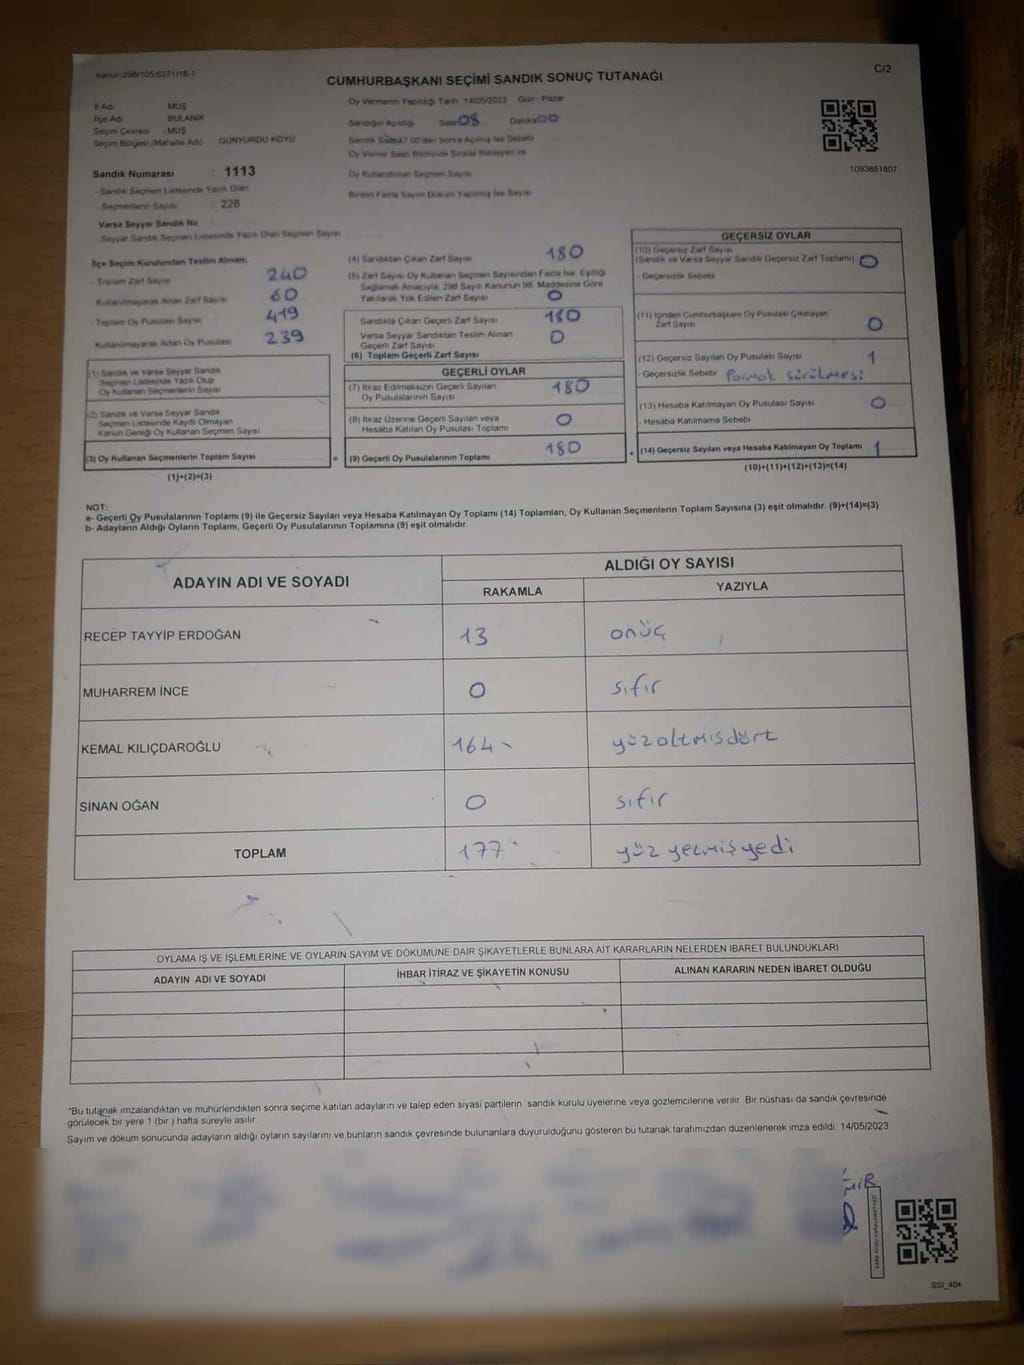 Kanun:298/105;6271/18-1
C/2
CUMHURBAŞKANI SEÇİMİ SANDIK SONUÇ TUTANAĞI
İl Adı MUŞ
İlçe Adı BULANIK
Seçim Çevresi : MUŞ
Seçim Bölgesi (Mahalle Adı) GÜNYURDU KÖYÜ
Oy Vermenin Yapıldığı Tarih 14/05/2023 Gün : Pazar
Sandığın Açıldığı Saat 08 Dakika 00
Sandık Saat 17:00'den Sonra Açılmış İse Sebebi
Oy Verme Saati Bitiminde Sırada Bekleyen ve
Oy Kullandırılan Seçmen Sayısı
Birden Fazla Sayım Döküm Yapılmış İse Sayısı
1093851607
Sandık Numarası : 1113
- Sandık Seçmen Listesinde Yazılı Olan
Seçmenlerin Sayısı 228
Varsa Seyyar Sandık No
- Seyyar Sandık Seçmen Listesinde Yazılı Olan Seçmen Sayısı
İlçe Seçim Kurulundan Teslim Alınan;
- Toplam Zarf Sayısı 240
Kullanılmayarak Artan Zarf Sayısı 60
- Toplam Oy Pusulası Sayısı 419
Kullanılmayarak Artan Oy Pusulası 239
(1) Sandık ve Varsa Seyyar Sandık
Seçmen Listesinde Yazılı Olup
Oy Kullanan Seçmenlerin Sayısı
(2) Sandık ve Varsa Seyyar Sandık
Seçmen Listesinde Kayıtlı Olmayan
Kanun Gereği Oy Kullanan Seçmen Sayısı
(3) Oy Kullanan Seçmenlerin Toplam Sayısı
(1)+(2)=(3)
(4) Sandıktan Çıkan Zarf Sayısı 180
(5) Zarf Sayısı Oy Kullanan Seçmen Sayısından Fazla İse, Eşitliği
Sağlamak Amacıyla, 298 Sayılı Kanunun 98. Maddesine Göre
Yakılarak Yok Edilen Zarf Sayısı 0
Sandıkta Çıkan Geçerli Zarf Sayısı 180
Varsa Seyyar Sandıktan Teslim Alınan
Geçerli Zarf Sayısı 0
(6) Toplam Geçerli Zarf Sayısı
GEÇERLİ OYLAR
(7) İtiraz Edilmeksizin Geçerli Sayılan
Oy Pusulalarının Sayısı 180
(8) İtiraz Üzerine Geçerli Sayılan veya
Hesaba Katılan Oy Pusulası Toplamı 0
=
(9) Geçerli Oy Pusulalarının Toplamı 180
+
GEÇERSİZ OYLAR
(10) Geçersiz Zarf Sayısı
(Sandık ve Varsa Seyyar Sandık Geçersiz Zarf Toplamı) 0
- Geçersizlik Sebebi
(11) İçinden Cumhurbaşkanı Oy Pusulası Çıkmayan
Zarf Sayısı 0
(12) Geçersiz Sayılan Oy Pusulası Sayısı 1
- Geçersizlik Sebebi Parmak sürülmesi
(13) Hesaba Katılmayan Oy Pusulası Sayısı 0
- Hesaba Katılmama Sebebi
(14) Geçersiz Sayılan veya Hesaba Katılmayan Oy Toplamı 1
(10)+(11)+(12)+(13)=(14)
NOT:
a- Geçerli Oy Pusulalarının Toplamı (9) ile Geçersiz Sayılan veya Hesaba Katılmayan Oy Toplamı (14) Toplamları, Oy Kullanan Seçmenlerin Toplam Sayısına (3) eşit olmalıdır. (9)+(14)=(3)
b- Adayların Aldığı Oyların Toplamı, Geçerli Oy Pusulalarının Toplamına (9) eşit olmalıdır.
ADAYIN ADI VE SOYADI
ALDIĞI OY SAYISI
RAKAMLA YAZIYLA
RECEP TAYYİP ERDOĞAN 13 onüç
MUHARREM İNCE 0 sıfır
KEMAL KILIÇDAROĞLU 164 yüzaltmışdört
SİNAN OĞAN 0 sıfır
TOPLAM 177 yüz yetmiş yedi
OYLAMA İŞ VE İŞLEMLERİNE VE OYLARIN SAYIM VE DÖKÜMÜNE DAİR ŞİKAYETLERLE BUNLARA AİT KARARLARIN NELERDEN İBARET BULUNDUKLARI
ADAYIN ADI VE SOYADI İHBAR İTİRAZ VE ŞİKAYETİN KONUSU ALINAN KARARIN NEDEN İBARET OLDUĞU
*Bu tutanak imzalandıktan ve mühürlendikten sonra seçime katılan adayların ve talep eden siyasi partilerin sandık kurulu üyelerine veya gözlemcilerine verilir. Bir nüshası da sandık çevresinde
görülecek bir yere 1 (bir ) hafta süreyle asılır.
Sayım ve döküm sonucunda adayların aldığı oyların sayılarını ve bunların sandık çevresinde bulunanlara duyurulduğunu gösteren bu tutanak tarafımızdan düzenlenerek imza edildi. 14/05/2023
SSI_404